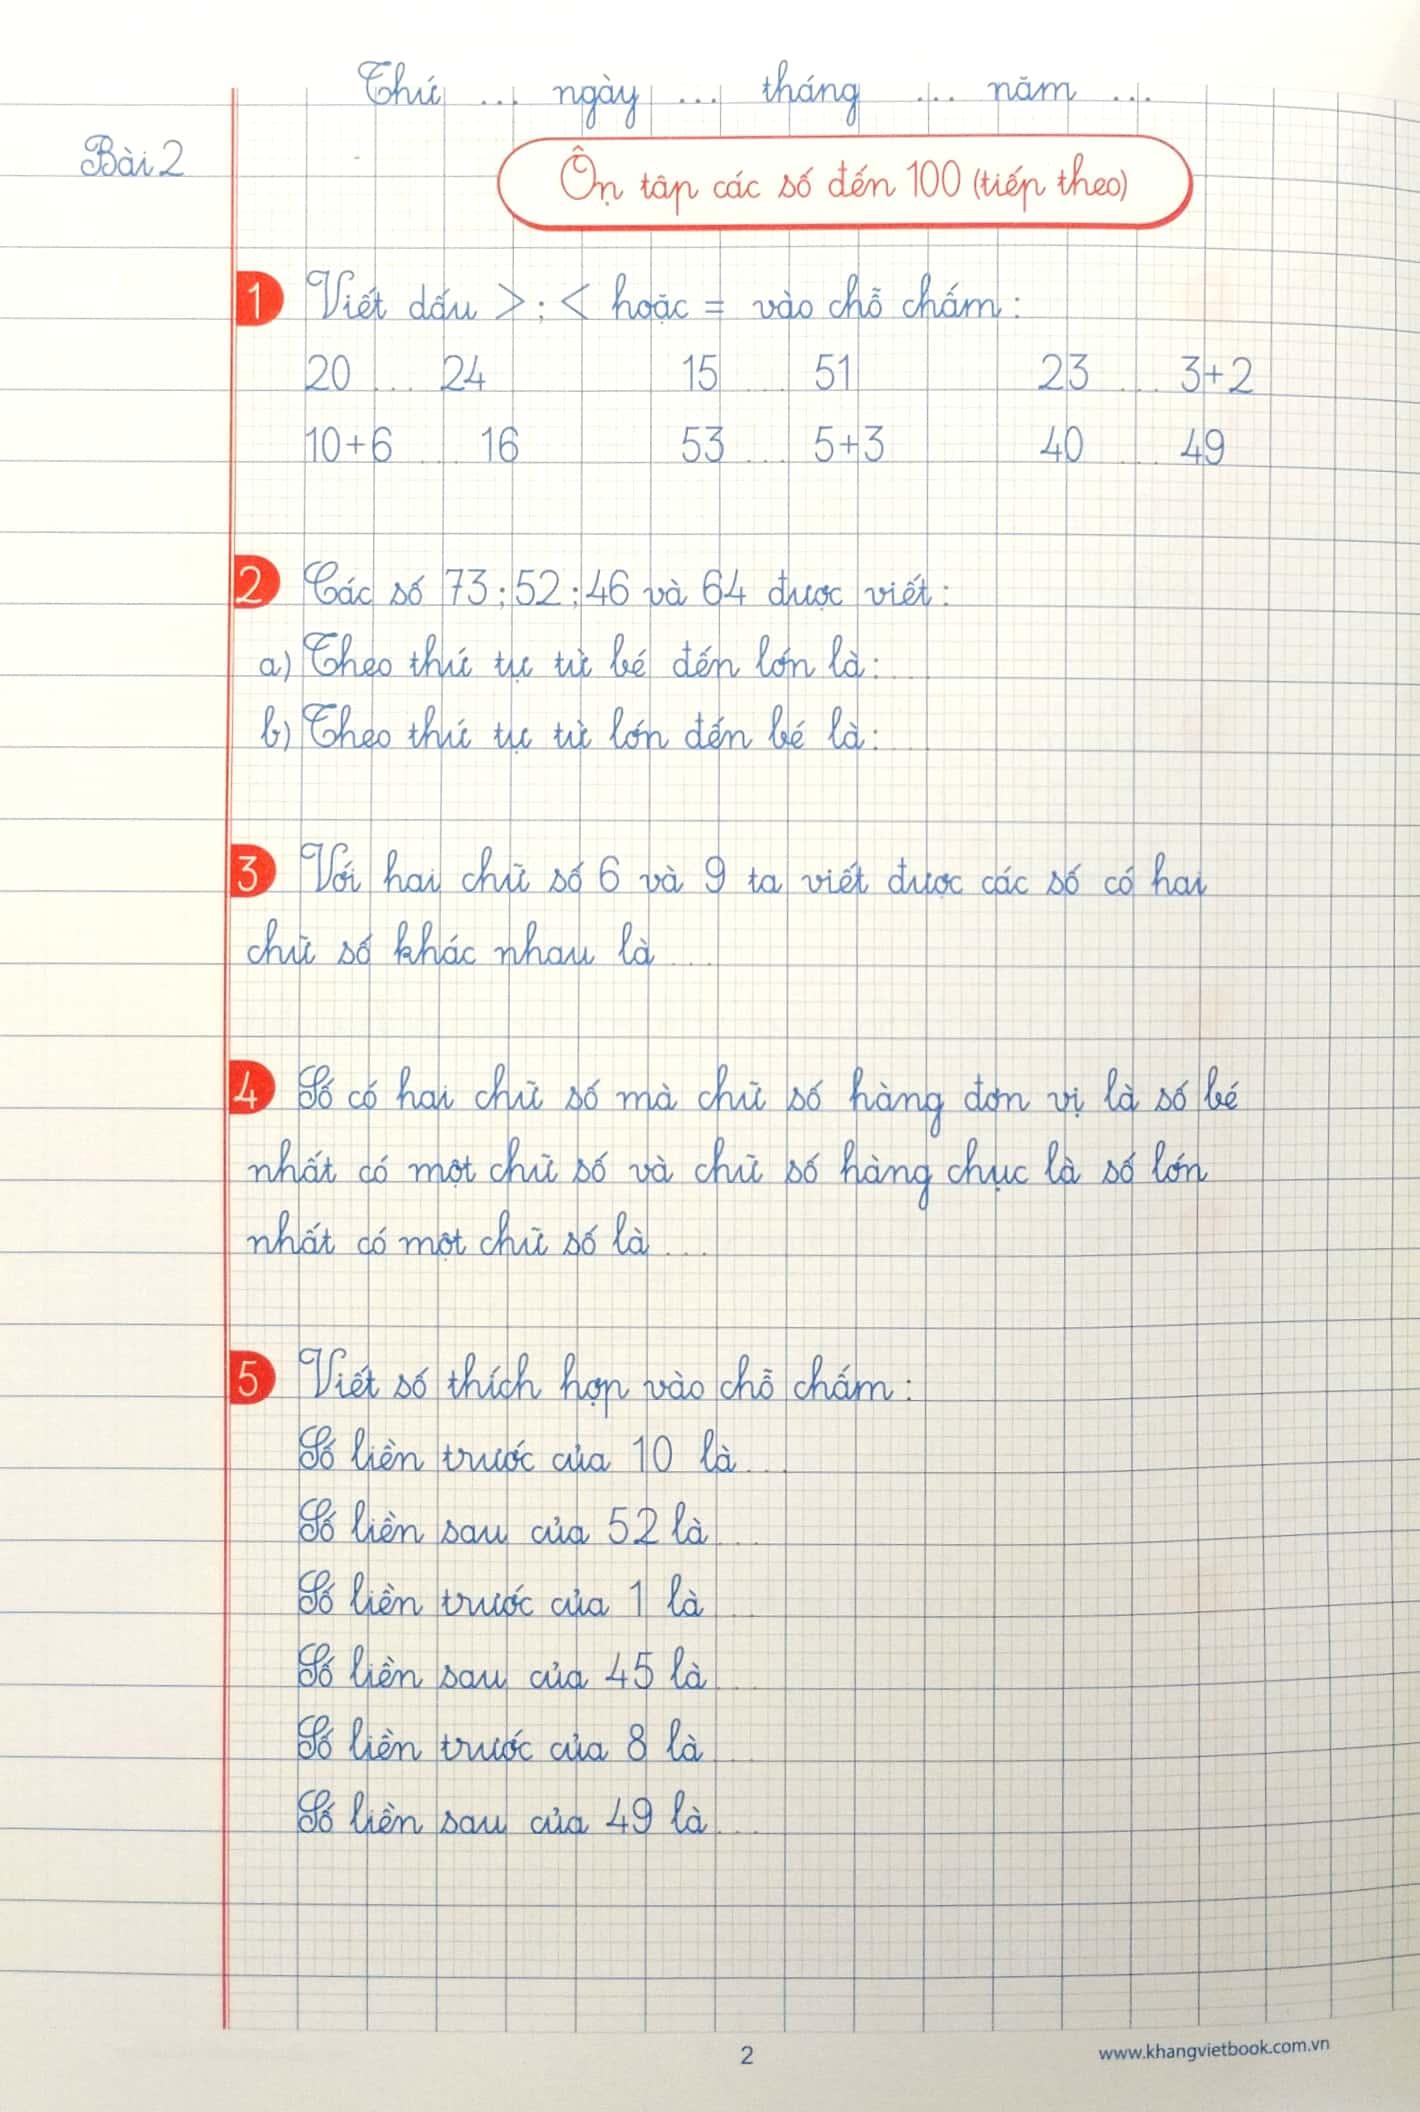 Thứ ... ngày ... tháng ... năm ...
Bài 2
Ôn tập các số đến 100 (tiếp theo)
1 Viết dấu > ; < hoặc = vào chỗ chấm:
20 ... 24 15 ... 51 23 ... 3+2
10+6 ... 16 53 ... 5+3 40 ... 49
2 Các số 73 ; 52 ; 46 và 64 được viết:
a) Theo thứ tự từ bé đến lớn là: ...
b) Theo thứ tự từ lớn đến bé là: ...
3 Với hai chữ số 6 và 9 ta viết được các số có hai
chữ số khác nhau là ...
4 Số có hai chữ số mà chữ số hàng đơn vị là số bé
nhất có một chữ số và chữ số hàng chục là số lớn
nhất có một chữ số là ...
5 Viết số thích hợp vào chỗ chấm:
Số liền trước của 10 là ...
Số liền sau của 52 là ...
Số liền trước của 1 là ...
Số liền sau của 45 là ...
Số liền trước của 8 là ...
Số liền sau của 49 là ...
2
www.khangvietbook.com.vn